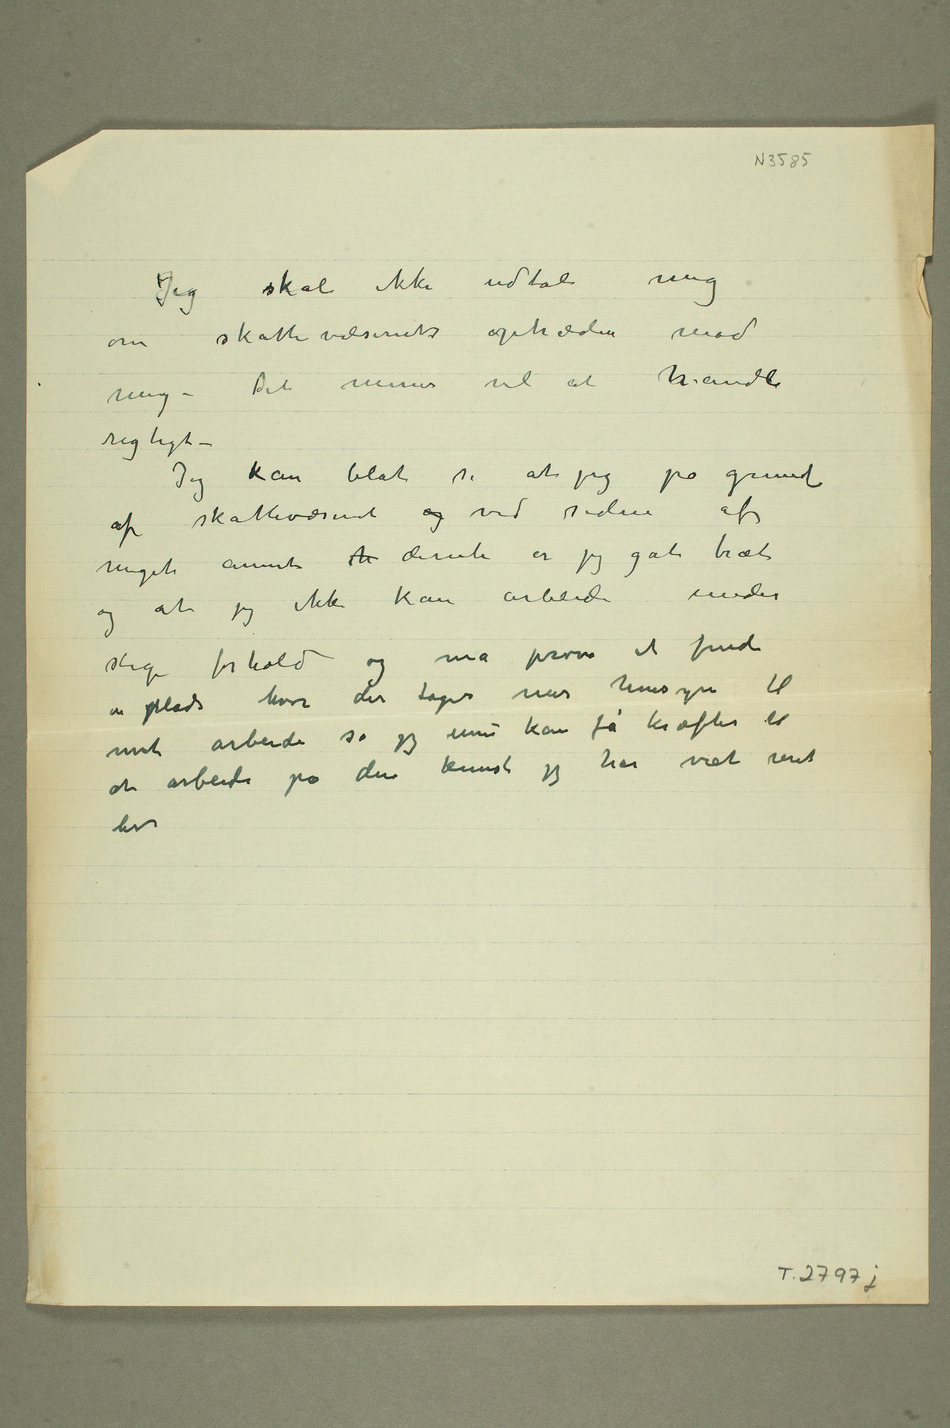 N3585
Jeg skal ikke udtale mig
om skattevæsenets optræden mod
mig – Det mener vel at handle
rigtigt –
Jeg kan blot se at jeg på grund
af skattevæsenet og ved siden af
meget annet er jeg gåt træt
og at jeg ikke kan arbeide under
slige forhold og må prøve at finde
en plads hvor der tages mer hensyn til
mit arbeide så jeg kan få kræfter til
at arbeide på den kunst jeg har viet
livet
T.2797j